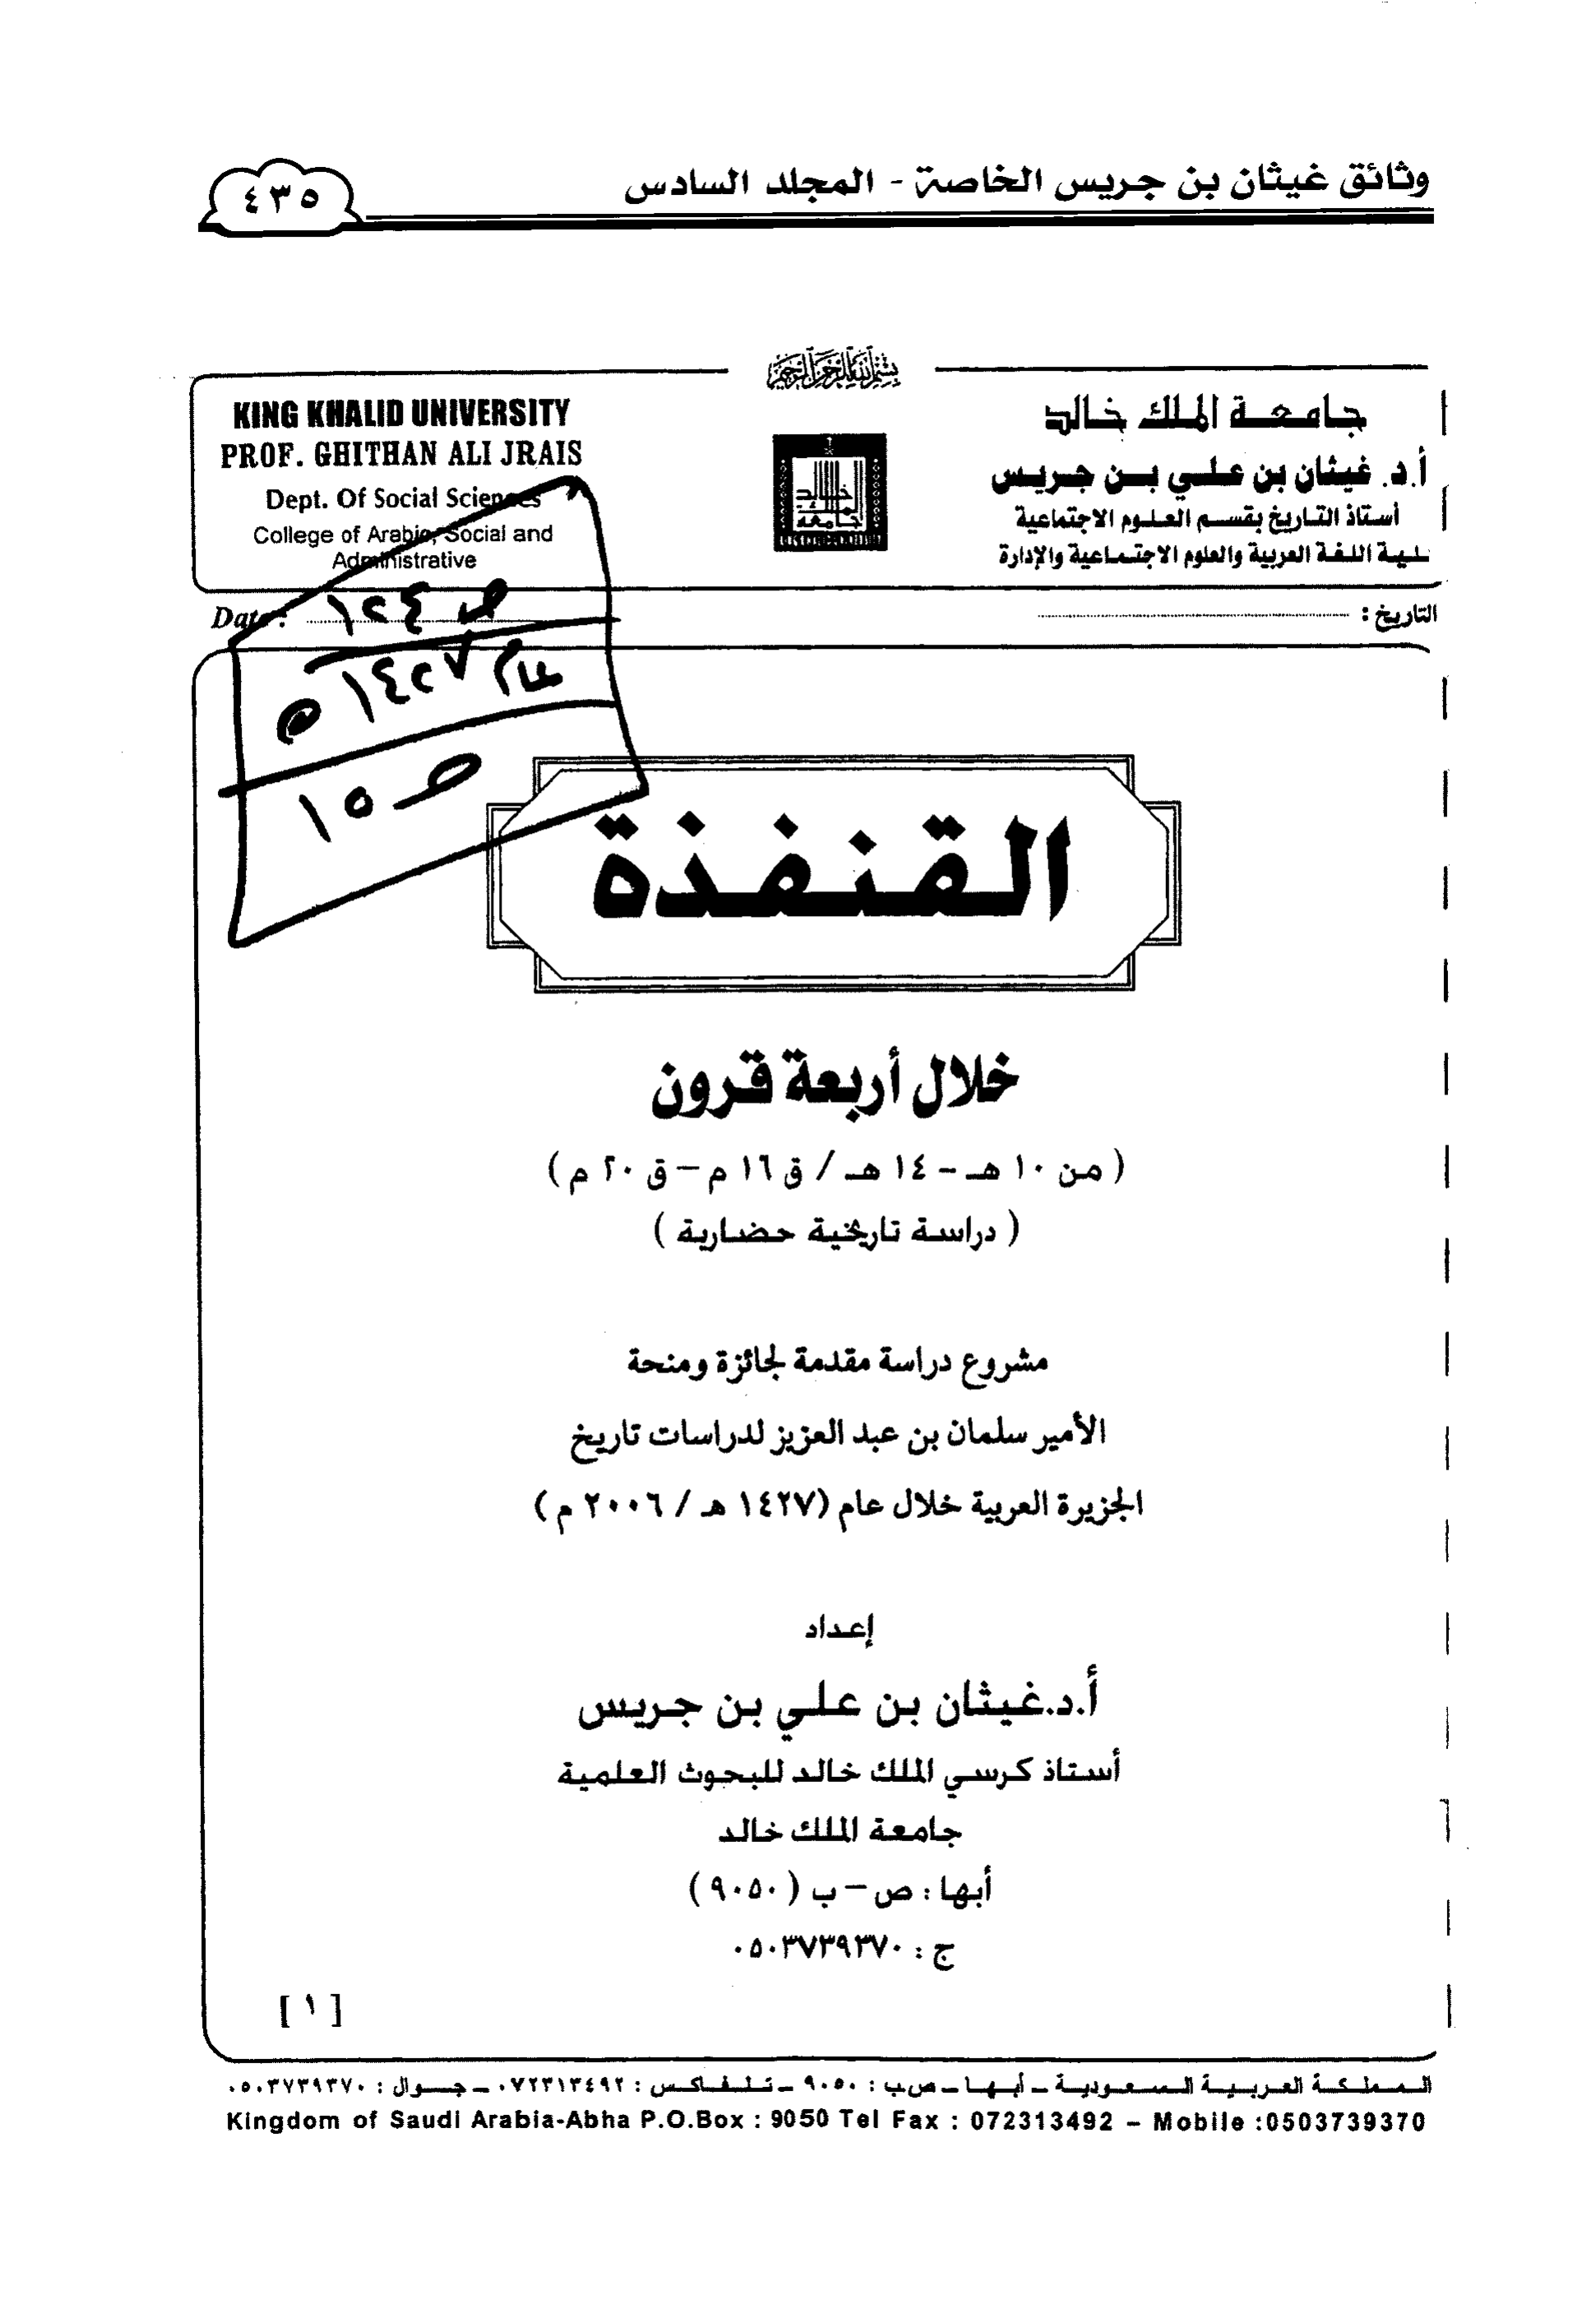 وثائق غيثان بن جريس الخاصة - المجلد السادس
٤٣٥
بسم الله الرحمن الرحيم
KING KHALID UNIVERSITY
PROF. GHITHAN ALI JRAIS
Dept. Of Social Sciences
College of Arabic, Social and
Administrative
جامعة الملك خالد
أ.د. غيثان بن علي بن جريس
أستاذ التاريخ بقسم العلوم الاجتماعية
ـلية اللغة العربية والعلوم الاجتماعية والإدارة
جامعة الملك خالد
Date :
التاريخ :
ص ١٢٤
عام ١٤٢٧ هـ
ص ١٥
القنفذة
خلال أربعة قرون
( من ١٠ هـ - ١٤ هـ / ق ١٦ م – ق ٢٠ م )
( دراسة تاريخية حضارية )
مشروع دراسة مقدمة لجائزة ومنحة
الأمير سلمان بن عبد العزيز لدراسات تاريخ
الجزيرة العربية خلال عام (١٤٢٧ هـ / ٢٠٠٦ م )
إعداد
أ.د.غيثان بن علي بن جريس
أستاذ كرسي الملك خالد للبحوث العلمية
جامعة الملك خالد
أبها : ص – ب ( ٩٠٥٠ )
ج : ٠٥٠٣٧٣٩٣٧٠
[ ١ ]
المملكة العربية السعودية – أبها – ص.ب : ٩٠٥٠ – تلفاكس : ٠٧٢٣١٣٤٩٢ – جوال : ٠٥٠٣٧٣٩٣٧٠
Kingdom of Saudi Arabia-Abha P.O.Box : 9050 Tel Fax : 072313492 – Mobile :0503739370